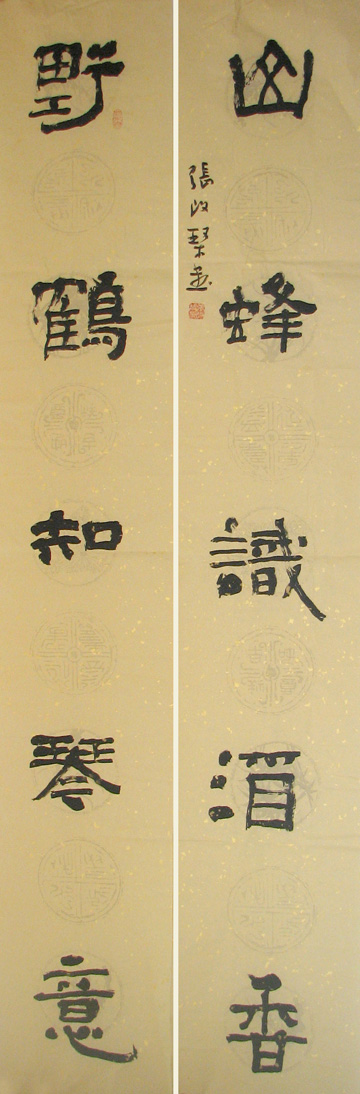 山蜂識酒香
張改琴書
野鶴知琴意